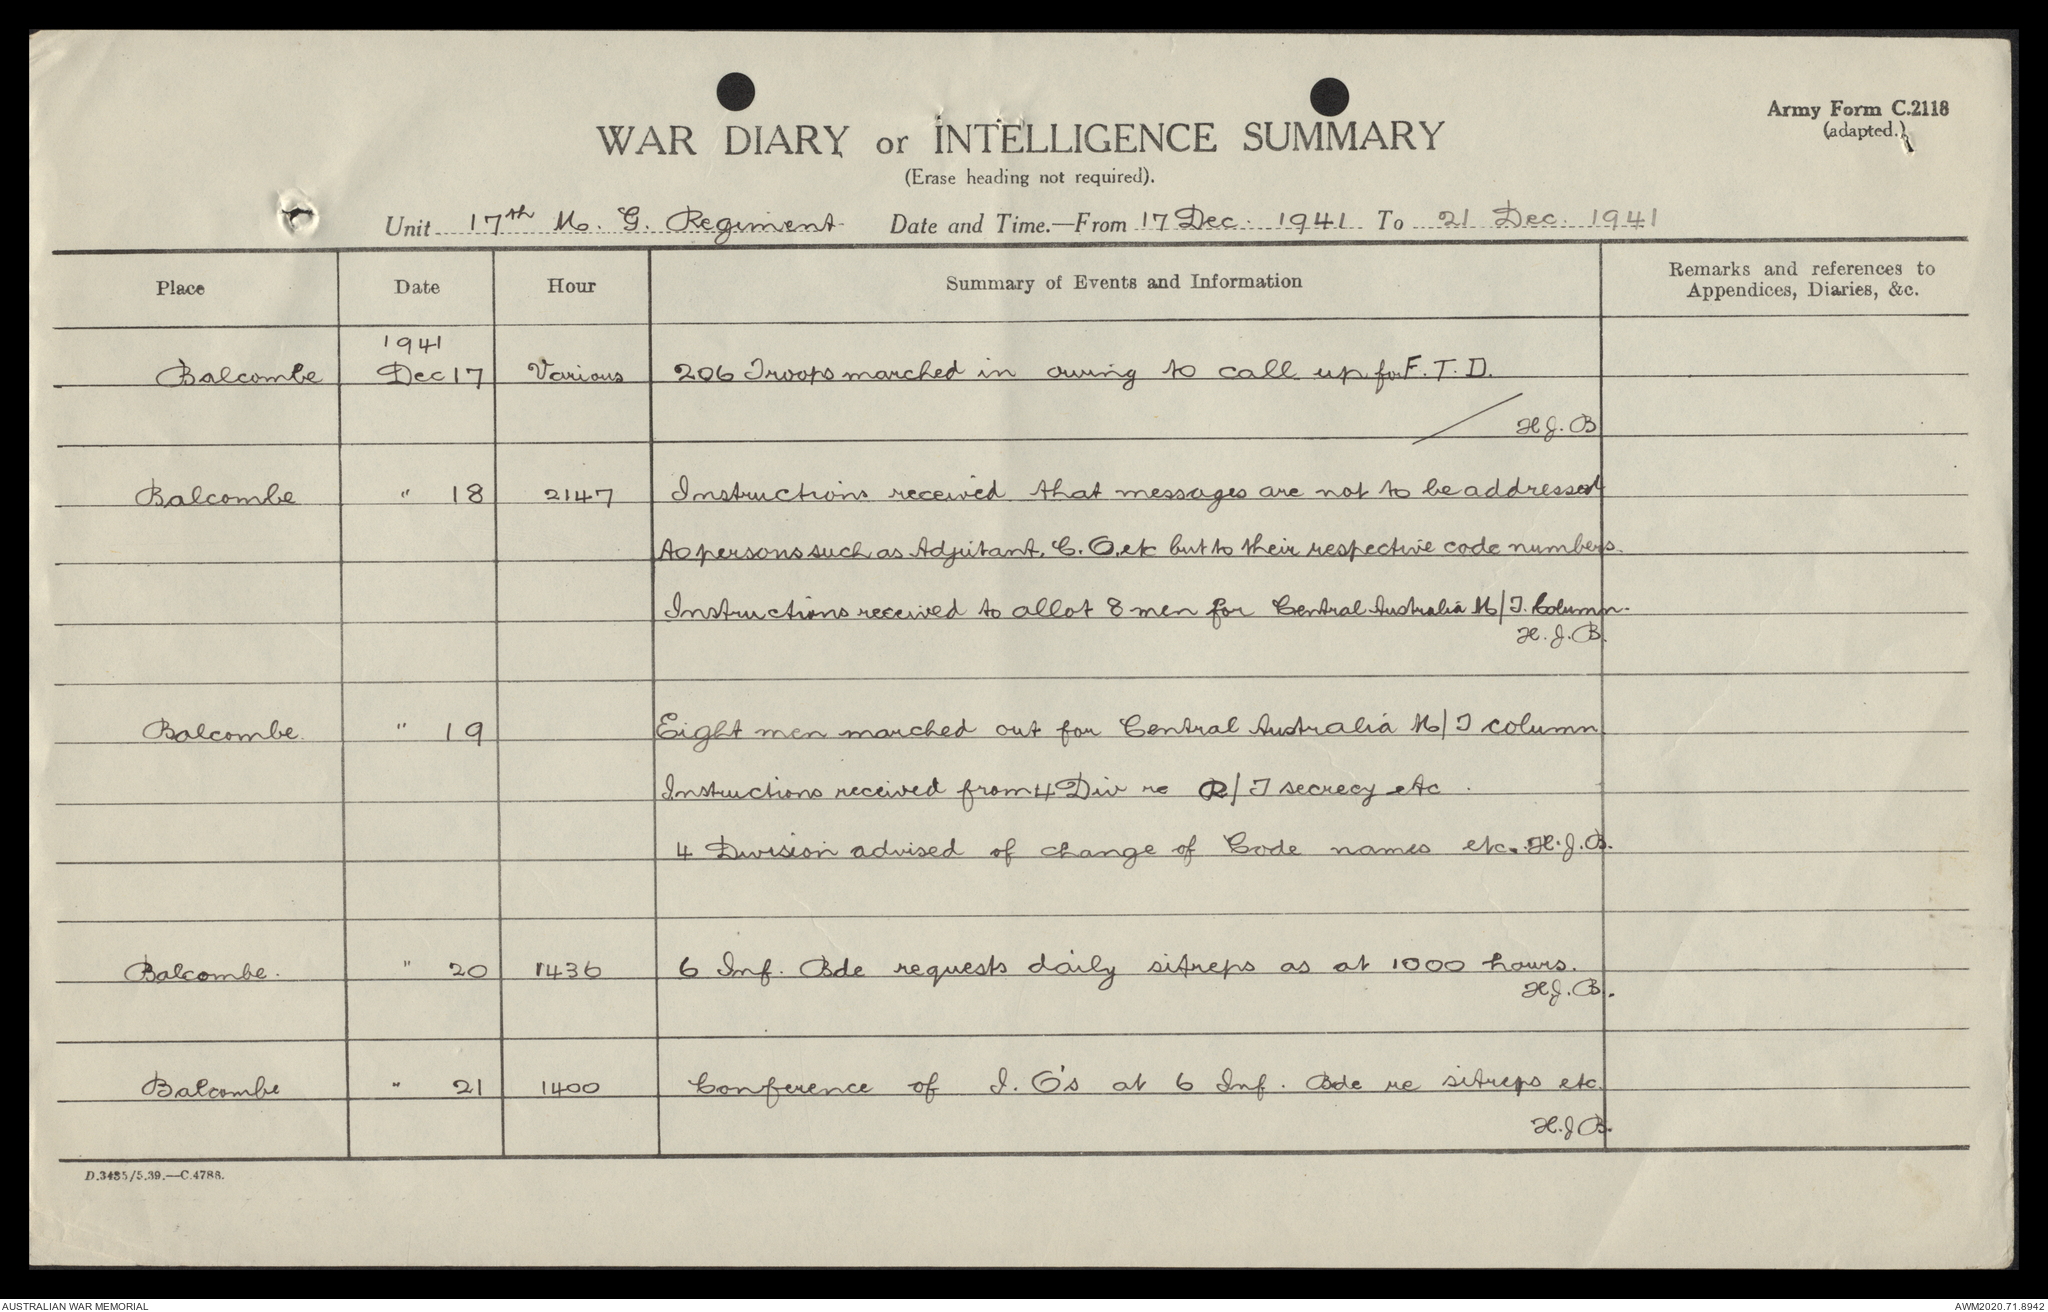 Army Form C.2118
(adapted.)
WAR DIARY or INTELLIGENCE SUMMARY
(Erase heading not required).
Unit 17th M. G. Regiment Date and Time.—From 17 Dec. 1941 To 21 Dec. 1941
Place Date Hour Summary of Events and Information Remarks and references to
Appendices, Diaries, &c.
1941
Balcombe Dec 17 Various 206 Troops marched in owing to call up for F.T.D.
H.J.B
Balcombe " 18 2147 Instructions received that messages are not to be addressed
to persons such as Adjutant, C.O. etc but to their respective code numbers.
Instructions received to allot 8 men for Central Australia M/T. Column.
H.J.B.
Balcombe. " 19 Eight men marched out for Central Australia M/T column
Instructions received from 4 Div re R/T secrecy etc.
4 Division advised of change of Code names etc. H.J.B.
Balcombe. " 20 1436 6 Inf. Bde requests daily sitreps as at 1000 hours.
H.J.B.
Balcombe " 21 1400 Conference of I.O's at 6 Inf. Bde re sitreps etc.
H.J.B.
D.3435/5.39.—C.4788.
AUSTRALIAN WAR MEMORIAL AWM2020.71.8942